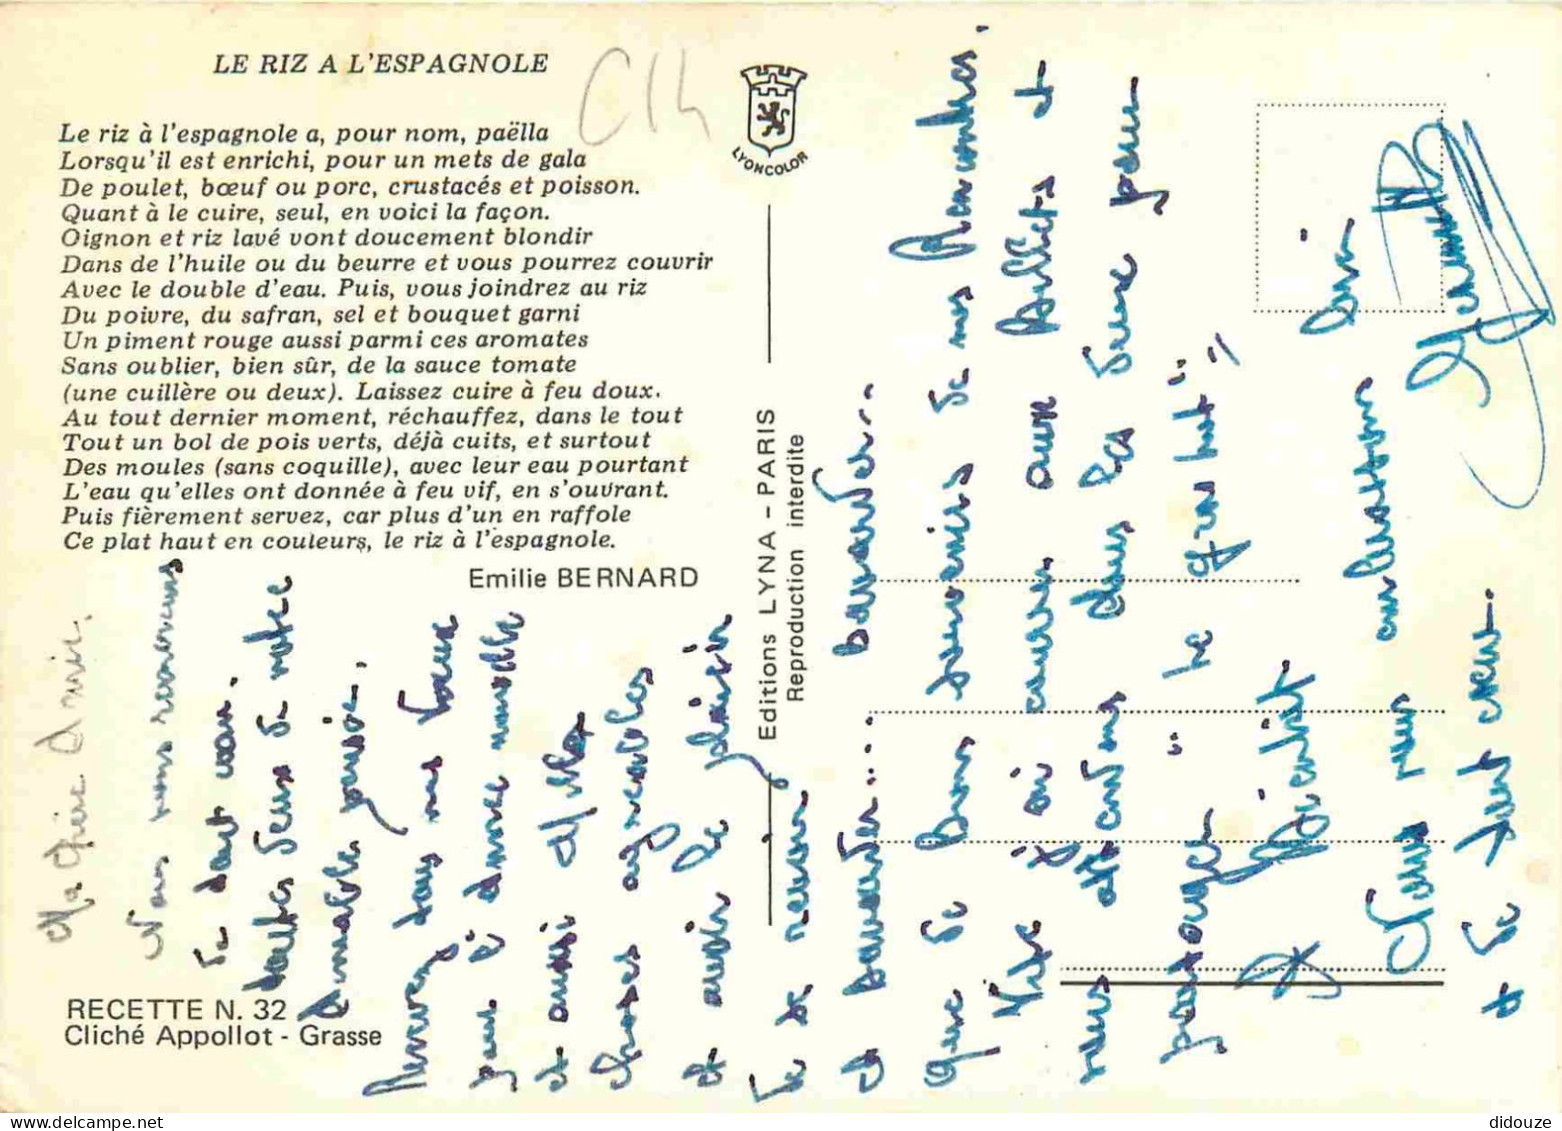 LE RIZ A L'ESPAGNOLE
Le riz à l'espagnole a, pour nom, paëlla
Lorsqu'il est enrichi, pour un mets de gala
De poulet, bœuf ou porc, crustacés et poisson.
Quant à le cuire, seul, en voici la façon.
Oignon et riz lavé vont doucement blondir
Dans de l'huile ou du beurre et vous pourrez couvrir
Avec le double d'eau. Puis, vous joindrez au riz
Du poivre, du safran, sel et bouquet garni
Un piment rouge aussi parmi ces aromates
Sans oublier, bien sûr, de la sauce tomate
(une cuillère ou deux). Laissez cuire à feu doux.
Au tout dernier moment, réchauffez, dans le tout
Tout un bol de pois verts, déjà cuits, et surtout
Des moules (sans coquille), avec leur eau pourtant
L'eau qu'elles ont donnée à feu vif, en s'ouvrant.
Puis fièrement servez, car plus d'un en raffole
Ce plat haut en couleurs, le riz à l'espagnole.
Emilie BERNARD
RECETTE N. 32
Cliché Appollot - Grasse
C14
LYONCOLOR
Editions LYNA - PARIS
Reproduction interdite
Ma Chère Amie.
Nous vous remercions
de tout cœur.
toutes deux de votre
Aimable pensée.
Recevez tous nos Vœux
pour l'année nouvelle
et aussi
choses agréables
et avoir le plaisir
de se revoir
et bavarder.... bavarder..
que de bons souvenirs de nos Rencontres.
Vite j'ai couru aux Billets et
vous attendons tous les deux pour
partager "le gros lot"!!
à Bientôt
Nous vous embrassons bien
et de tout cœur.